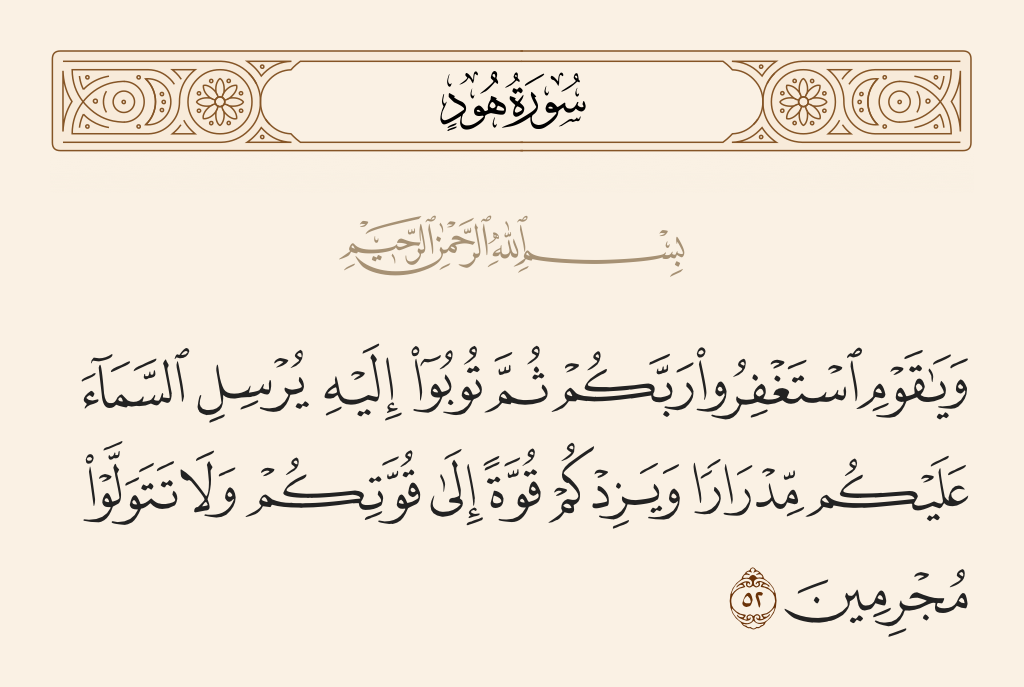 سُورَةُ هُودٍ
بِسْمِ ٱللَّهِ ٱلرَّحْمَٰنِ ٱلرَّحِيمِ
وَيَٰقَوْمِ ٱسْتَغْفِرُوا۟ رَبَّكُمْ ثُمَّ تُوبُوٓا۟ إِلَيْهِ يُرْسِلِ ٱلسَّمَآءَ
عَلَيْكُم مِّدْرَارًا وَيَزِدْكُمْ قُوَّةً إِلَىٰ قُوَّتِكُمْ وَلَا تَتَوَلَّوْا۟
مُجْرِمِينَ ٥٢